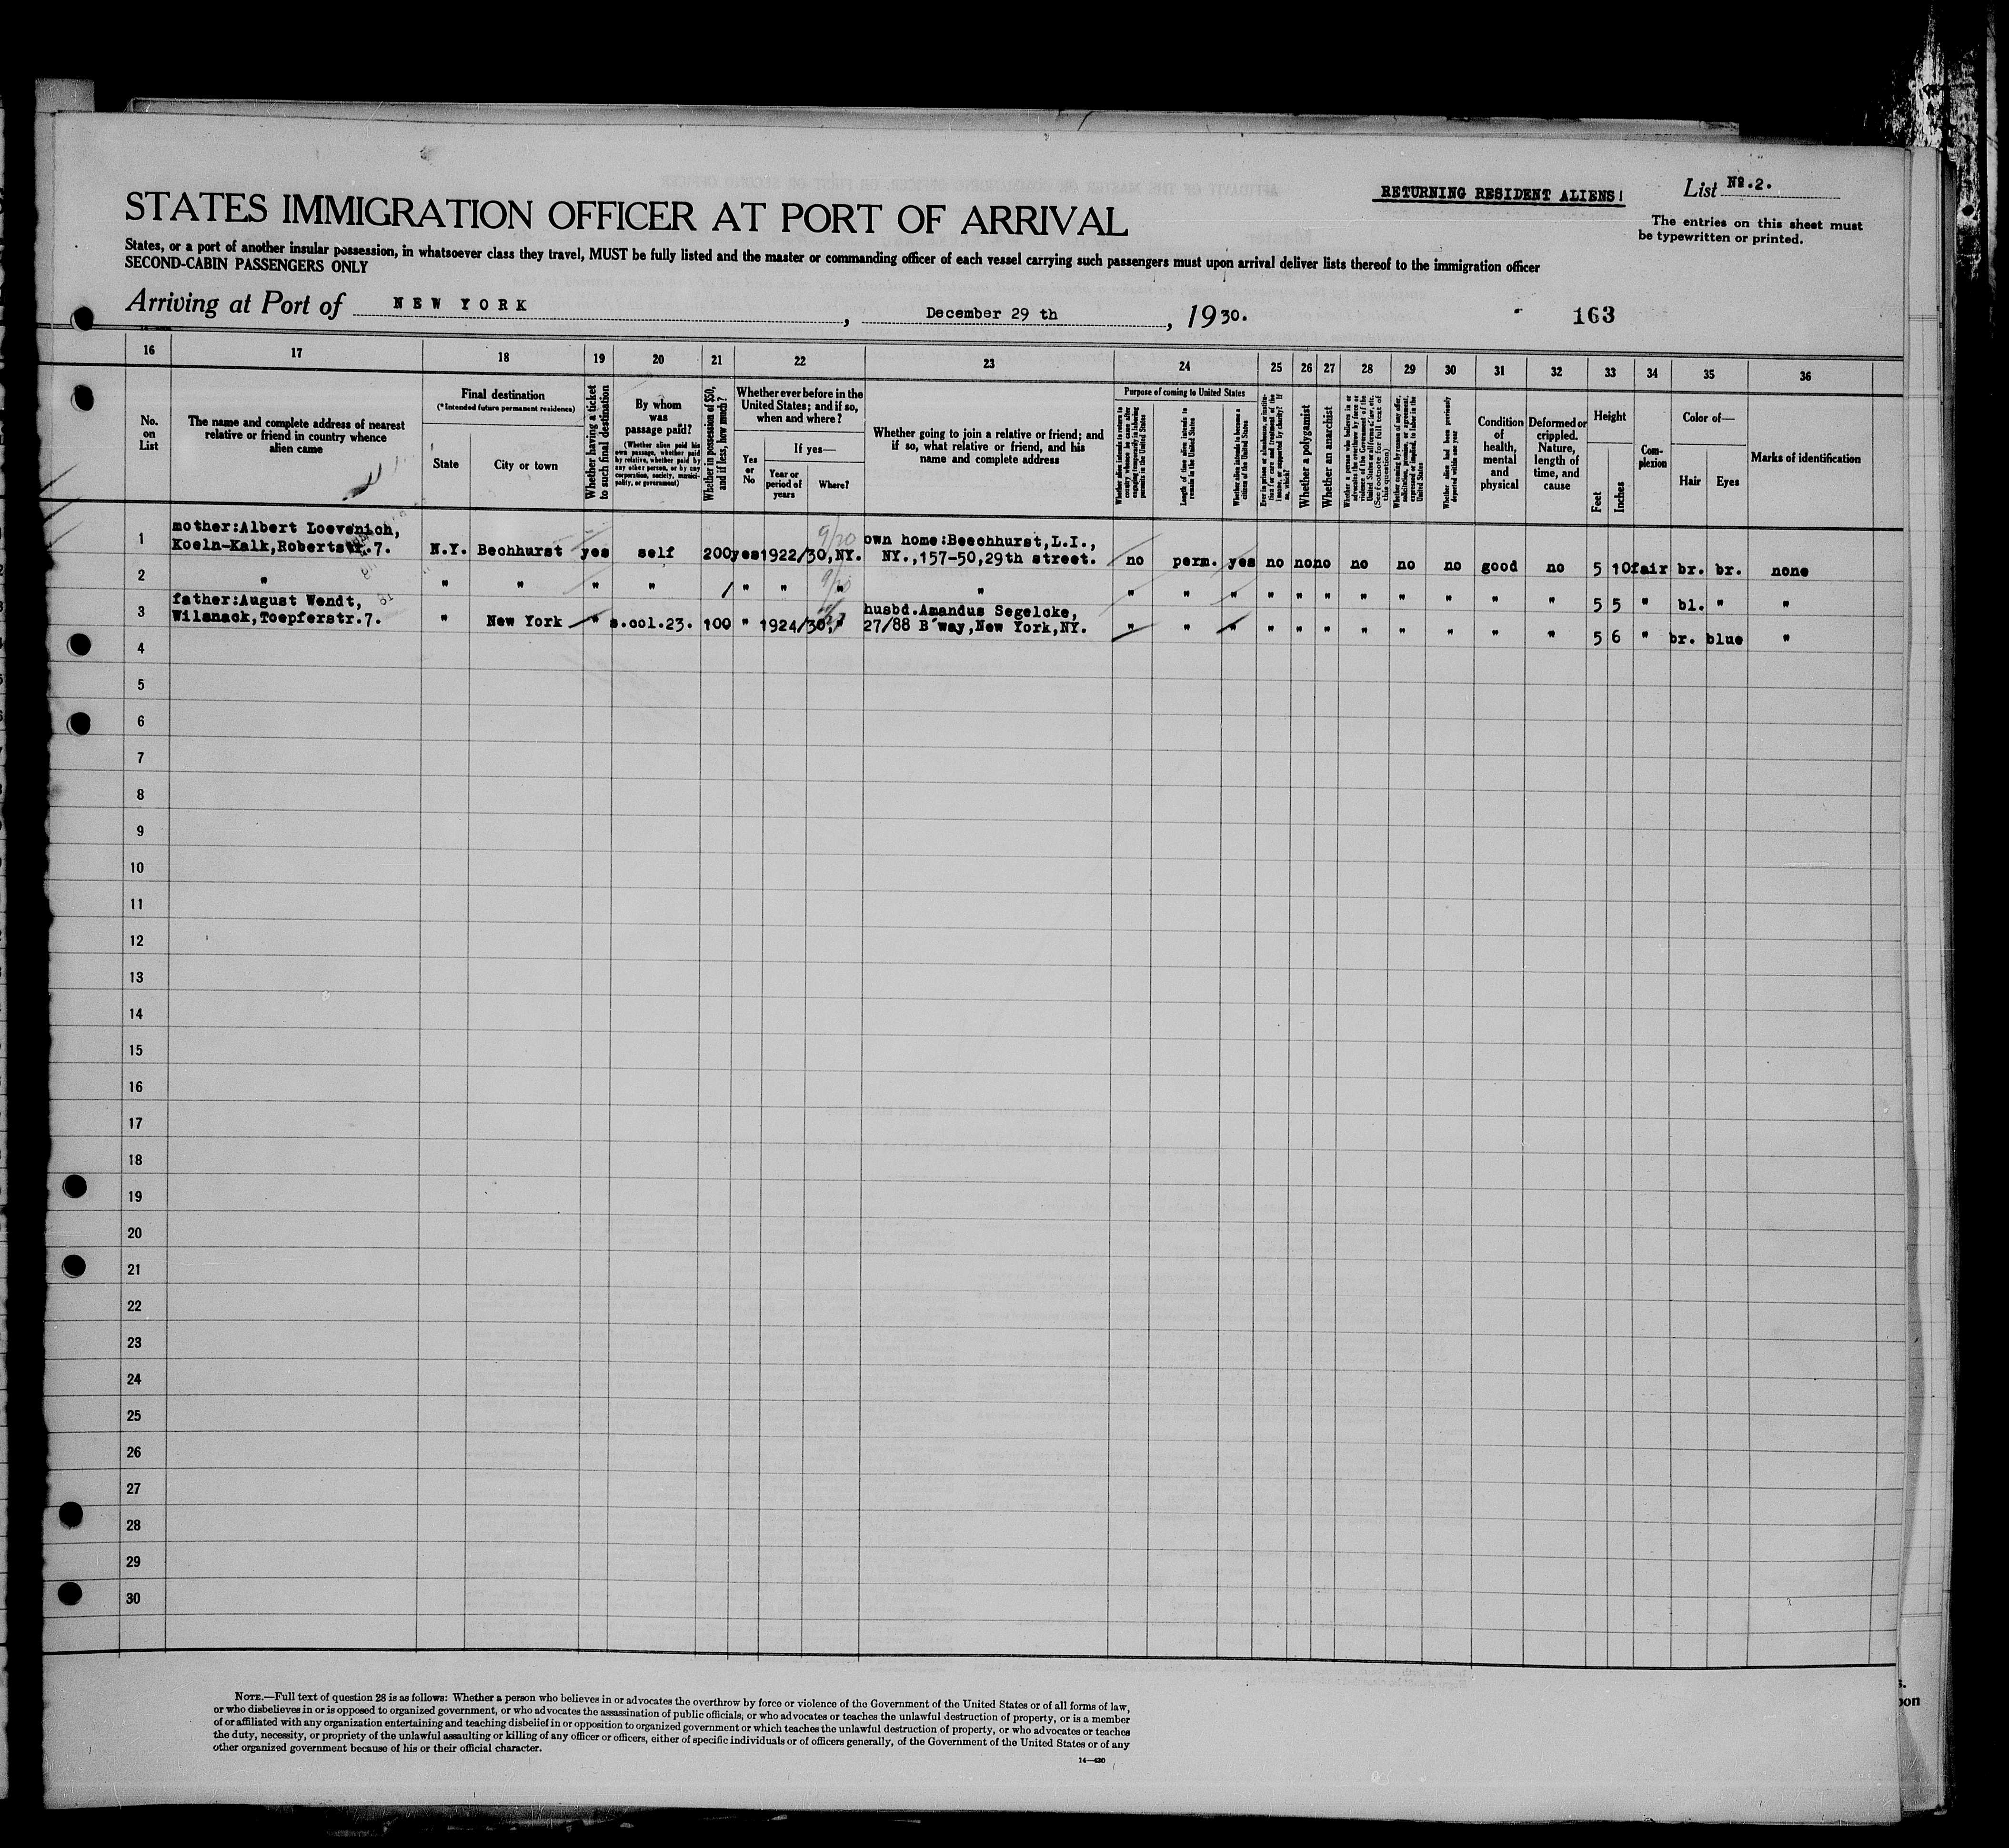 RETURNING RESIDENT ALIENS!
List No.2.
STATES IMMIGRATION OFFICER AT PORT OF ARRIVAL
The entries on this sheet must
be typewritten or printed.
States, or a port of another insular possession, in whatsoever class they travel, MUST be fully listed and the master or commanding officer of each vessel carrying such passengers must upon arrival deliver lists thereof to the immigration officer
SECOND-CABIN PASSENGERS ONLY
Arriving at Port of NEW YORK, December 29 th, 1930.
163
16 17 18 19 20 21 22 23 24 25 26 27 28 29 30 31 32 33 34 35 36
No.
on
List
The name and complete address of nearest
relative or friend in country whence
alien came
Final destination
(*Intended future permanent residence)
State
City or town
Whether having a ticket
to such final destination
By whom
was
passage paid?
(Whether alien paid his
own passage, whether paid
by relative, whether paid by
any other person, or by any
corporation, society, munici-
pality, or government)
Whether in possession of $50,
and if less, how much?
Whether ever before in the
United States; and if so,
when and where?
Yes
or
No
If yes—
Year or
period of
years
Where?
Whether going to join a relative or friend; and
if so, what relative or friend, and his
name and complete address
Purpose of coming to United States
Whether alien intends to return to
country whence he came after
engaging temporarily in laboring
pursuits in the United States
Length of time alien intends to
remain in the United States
Whether alien intends to become a
citizen of the United States
Whether a polygamist
Whether an anarchist
Condition
of
health,
mental
and
physical
Deformed or
crippled.
Nature,
length of
time, and
cause
Height
Feet
Inches
Com-
plexion
Color of—
Hair
Eyes
Marks of identification
mother:Albert Loevenich,
1 Koeln-Kalk,Robertstr.7. N.Y. Bechhurst yes self 200 yes 1922/30,NY. own home:Beechhurst,L.I.,
NY.,157-50,29th street. no perm. yes no no no no no no good no 5 10 fair br. br. none
9/20
2 " " " " " " " " " " " " " " " " " " " " 5 5 " bl. " "
father:August Wendt,
3 Wilsnack,Toepferstr.7. " New York " s.col.23. 100 " 1924/30," husbd.Amandus Segelcke,
27/88 B'way,New York,NY. " " " " " " " " " " " 5 6 " br. blue "
4
5
6
7
8
9
10
11
12
13
14
15
16
17
18
19
20
21
22
23
24
25
26
27
28
29
30
NOTE.—Full text of question 28 is as follows: Whether a person who believes in or advocates the overthrow by force or violence of the Government of the United States or of all forms of law,
or who disbelieves in or is opposed to organized government, or who advocates the assassination of public officials, or who advocates or teaches the unlawful destruction of property, or is a member
of or affiliated with any organization entertaining and teaching disbelief in or opposition to organized government or which teaches the unlawful destruction of property, or who advocates or teaches
the duty, necessity, or propriety of the unlawful assaulting or killing of any officer or officers, either of specific individuals or of officers generally, of the Government of the United States or of any
other organized government because of his or their official character.
14—430